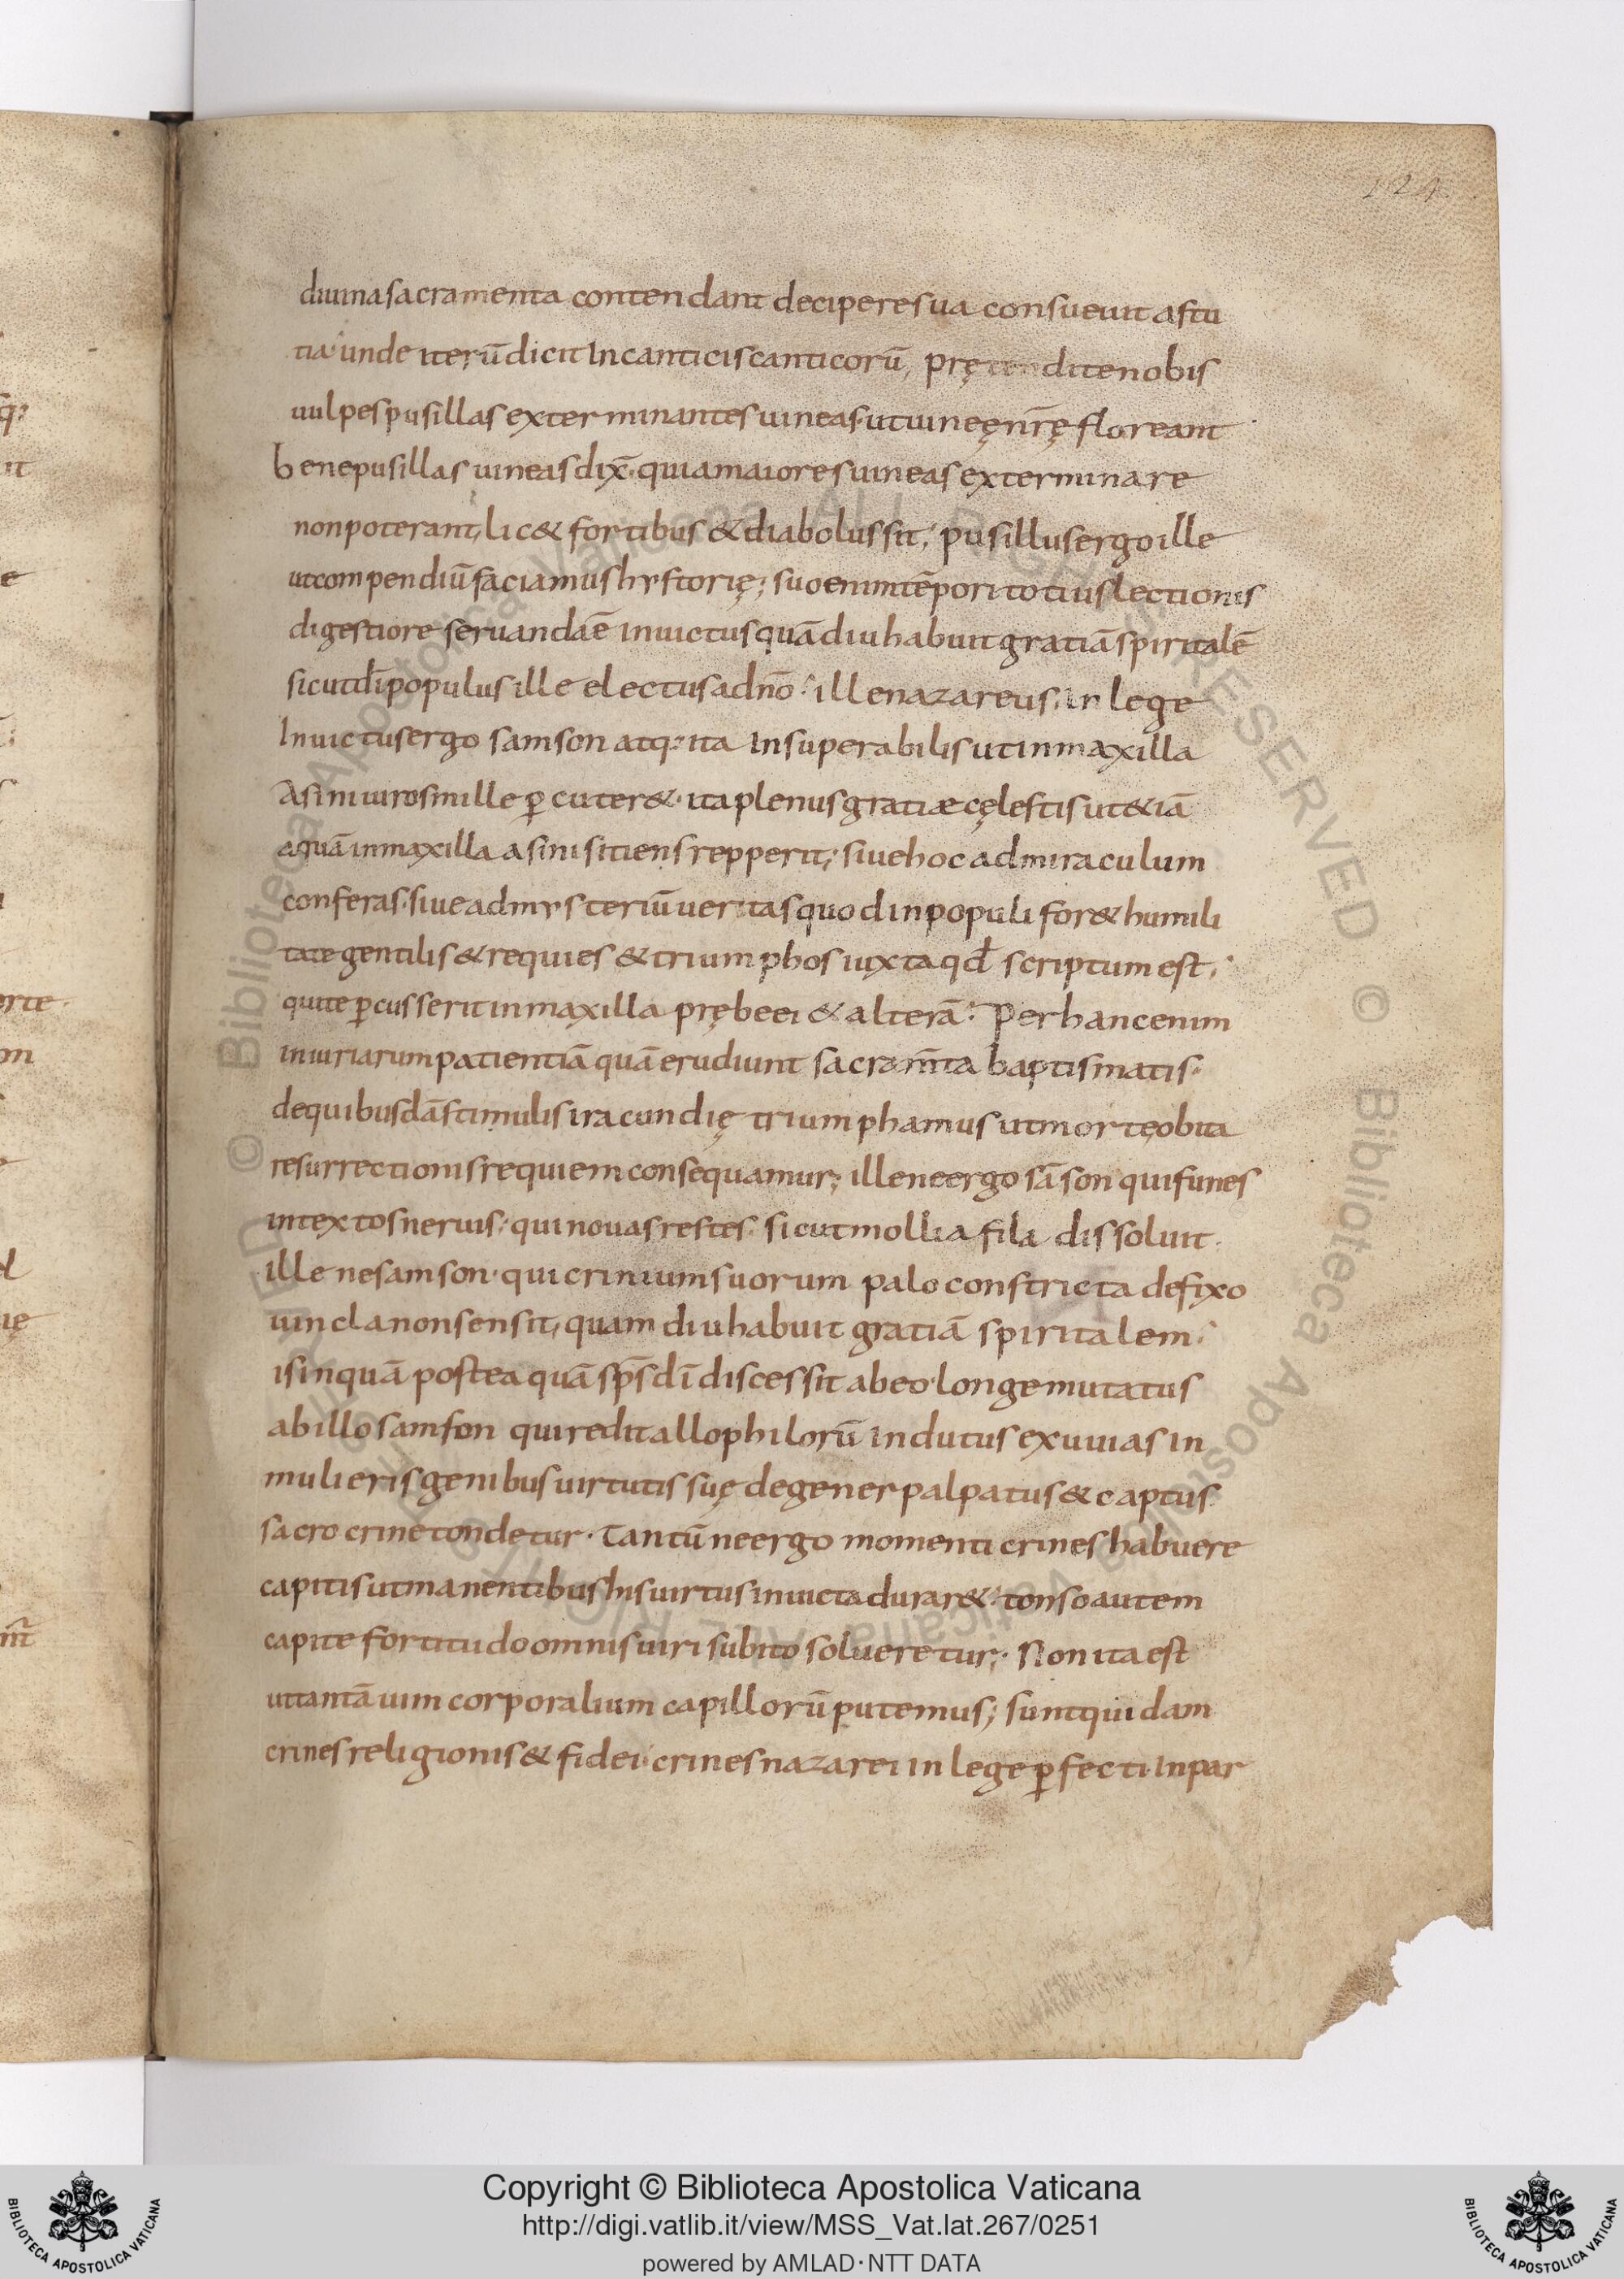 124
diuina sacramenta contendant decipere sua consueuit astu
tia unde iterū dicit In canticis canticorū, prętendite nobis
uulpes pusillas exterminantes uineas. ut uineę nr̄ę floreant
bene pusillas uineas dix̄. quia maiores uineas exterminare
non poterant, lic& fortibus & diabolus sit; pusillus ergo ille
ut compendiū faciamus hystorię; suo enim tēpori totius lectionis
digestiore seruanda ē inuictus quādiu habuit gratiā spiritalē
sicut dī populus ille electus a dn̄o; ille nazareus in lege
Inuictus ergo samson atq: ita Insuperabilis ut in maxilla
Asini uiros mille ꝑcuter&. ita plenus gratiæ cęlestis ut &iā
aquā in maxilla asini sitiens repperit; siue hoc ad miraculum
conferas. siue ad mysteriū uertas quod in populi for& humili
tate gentilis & requies & triumphos iuxta qđ scriptum est;
qui te ꝑcusserit in maxilla prębe ei & alterā; Per hanc enim
iniuriarum patientiā quā erudiunt sacram̄ta baptismatis.
de quibusdā stimulis iracundię triumphamus ut mortę obita
resurrectionis requiem consequamur; illene ergo sāson qui funes
intextos neruis; qui nouas restes. sicut mollia fila dissoluit.
ille ne samson. qui crinium suorum palo constricta defixo
uincla non sensit, quam diu habuit gratiā spiritalem;
is inquā postea quā sp̄s dī discessit ab eo. longe mutatus
ab illo samson qui redit allophilorū indutus exuuias in
mulieris genibus uirtutis suę degener palpatus & captus
sacro crine tondetur. Tantū ne ergo momenti crines habuere
capitis ut manentibus his uirtus inuicta durar&; tonso autem
capite fortitudo omnis uiri subito solueretur; Non ita est
ut tantā uim corporalium capillorū putemus; sunt quidam
crines religionis & fidei crines nazarei in lege ꝑfecti. In par
© Biblioteca Apostolica Vaticana. ALL RIGHTS RESERVED
Copyright © Biblioteca Apostolica Vaticana
http://digi.vatlib.it/view/MSS_Vat.lat.267/0251
powered by AMLAD·NTT DATA
BIBLIOTECA APOSTOLICA VATICANA
BIBLIOTECA APOSTOLICA VATICANA